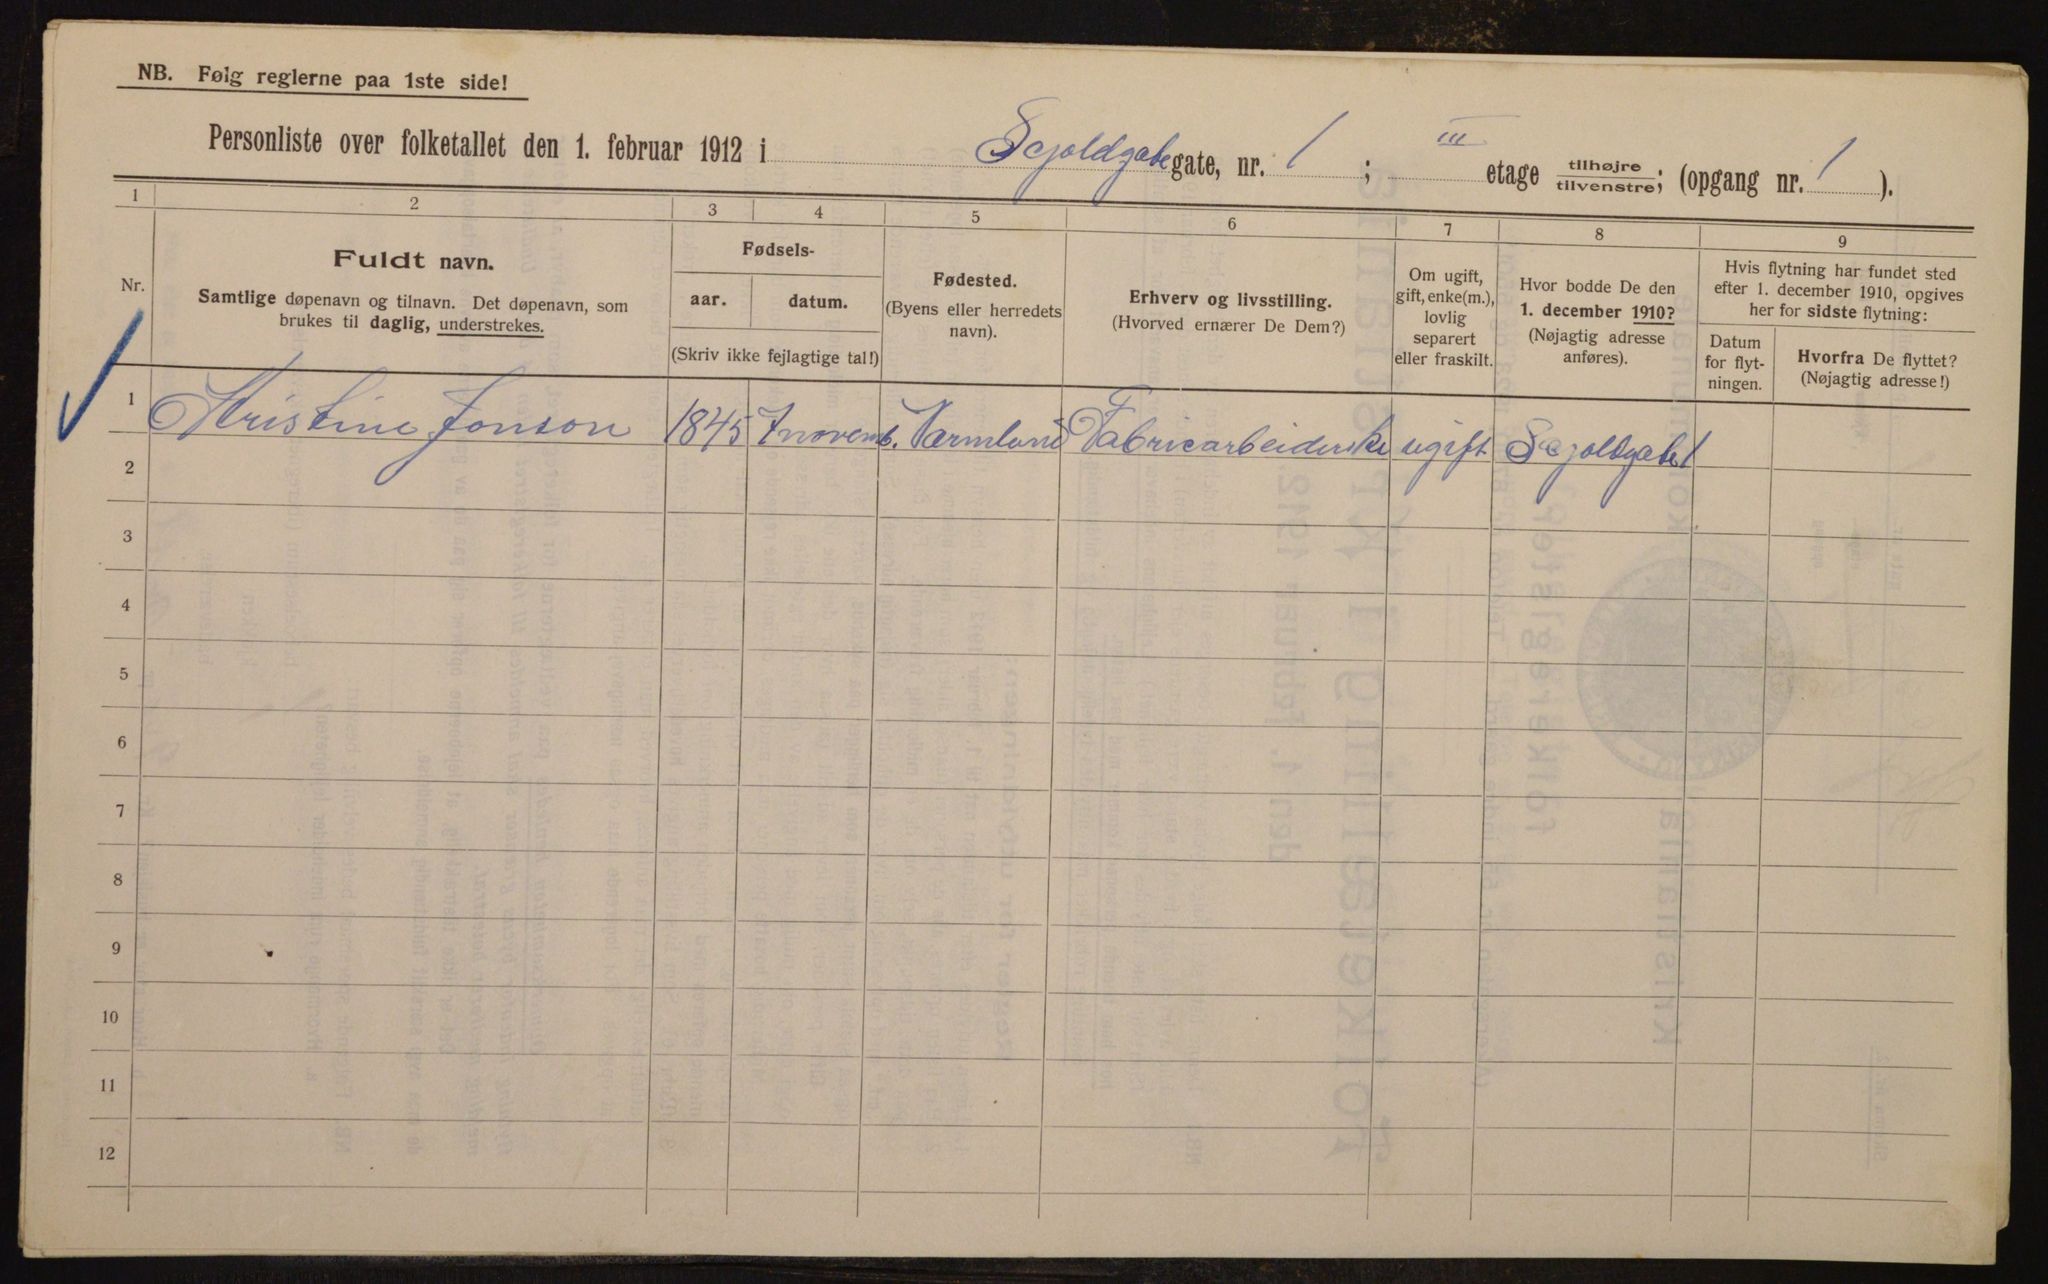 NB. Følg reglerne paa 1ste side!
Personliste over folketallet den 1. februar 1912 i Scjoldgabe gate, nr. 1 ; III etage tilhøjre/tilvenstre; (opgang nr. 1 ).
1 2 3 4 5 6 7 8 9
Nr.
Fuldt navn.
Samtlige døpenavn og tilnavn. Det døpenavn, som
brukes til daglig, understrekes.
Fødsels-
aar. datum.
(Skriv ikke fejlagtige tal!)
Fødested.
(Byens eller herredets
navn).
Erhverv og livsstilling.
(Hvorved ernærer De Dem?)
Om ugift,
gift, enke(m.),
lovlig
separert
eller fraskilt.
Hvor bodde De den
1. december 1910?
(Nøjagtig adresse
anføres).
Hvis flytning har fundet sted
efter 1. december 1910, opgives
her for sidste flytning:
Datum
for flyt-
ningen.
Hvorfra De flyttet?
(Nøjagtig adresse!)
1 Kristine Jonson 1845 7 novemb. Værmland Fabricarbeiderske ugift Scjoldgabe 1
2
3
4
5
6
7
8
9
10
11
12